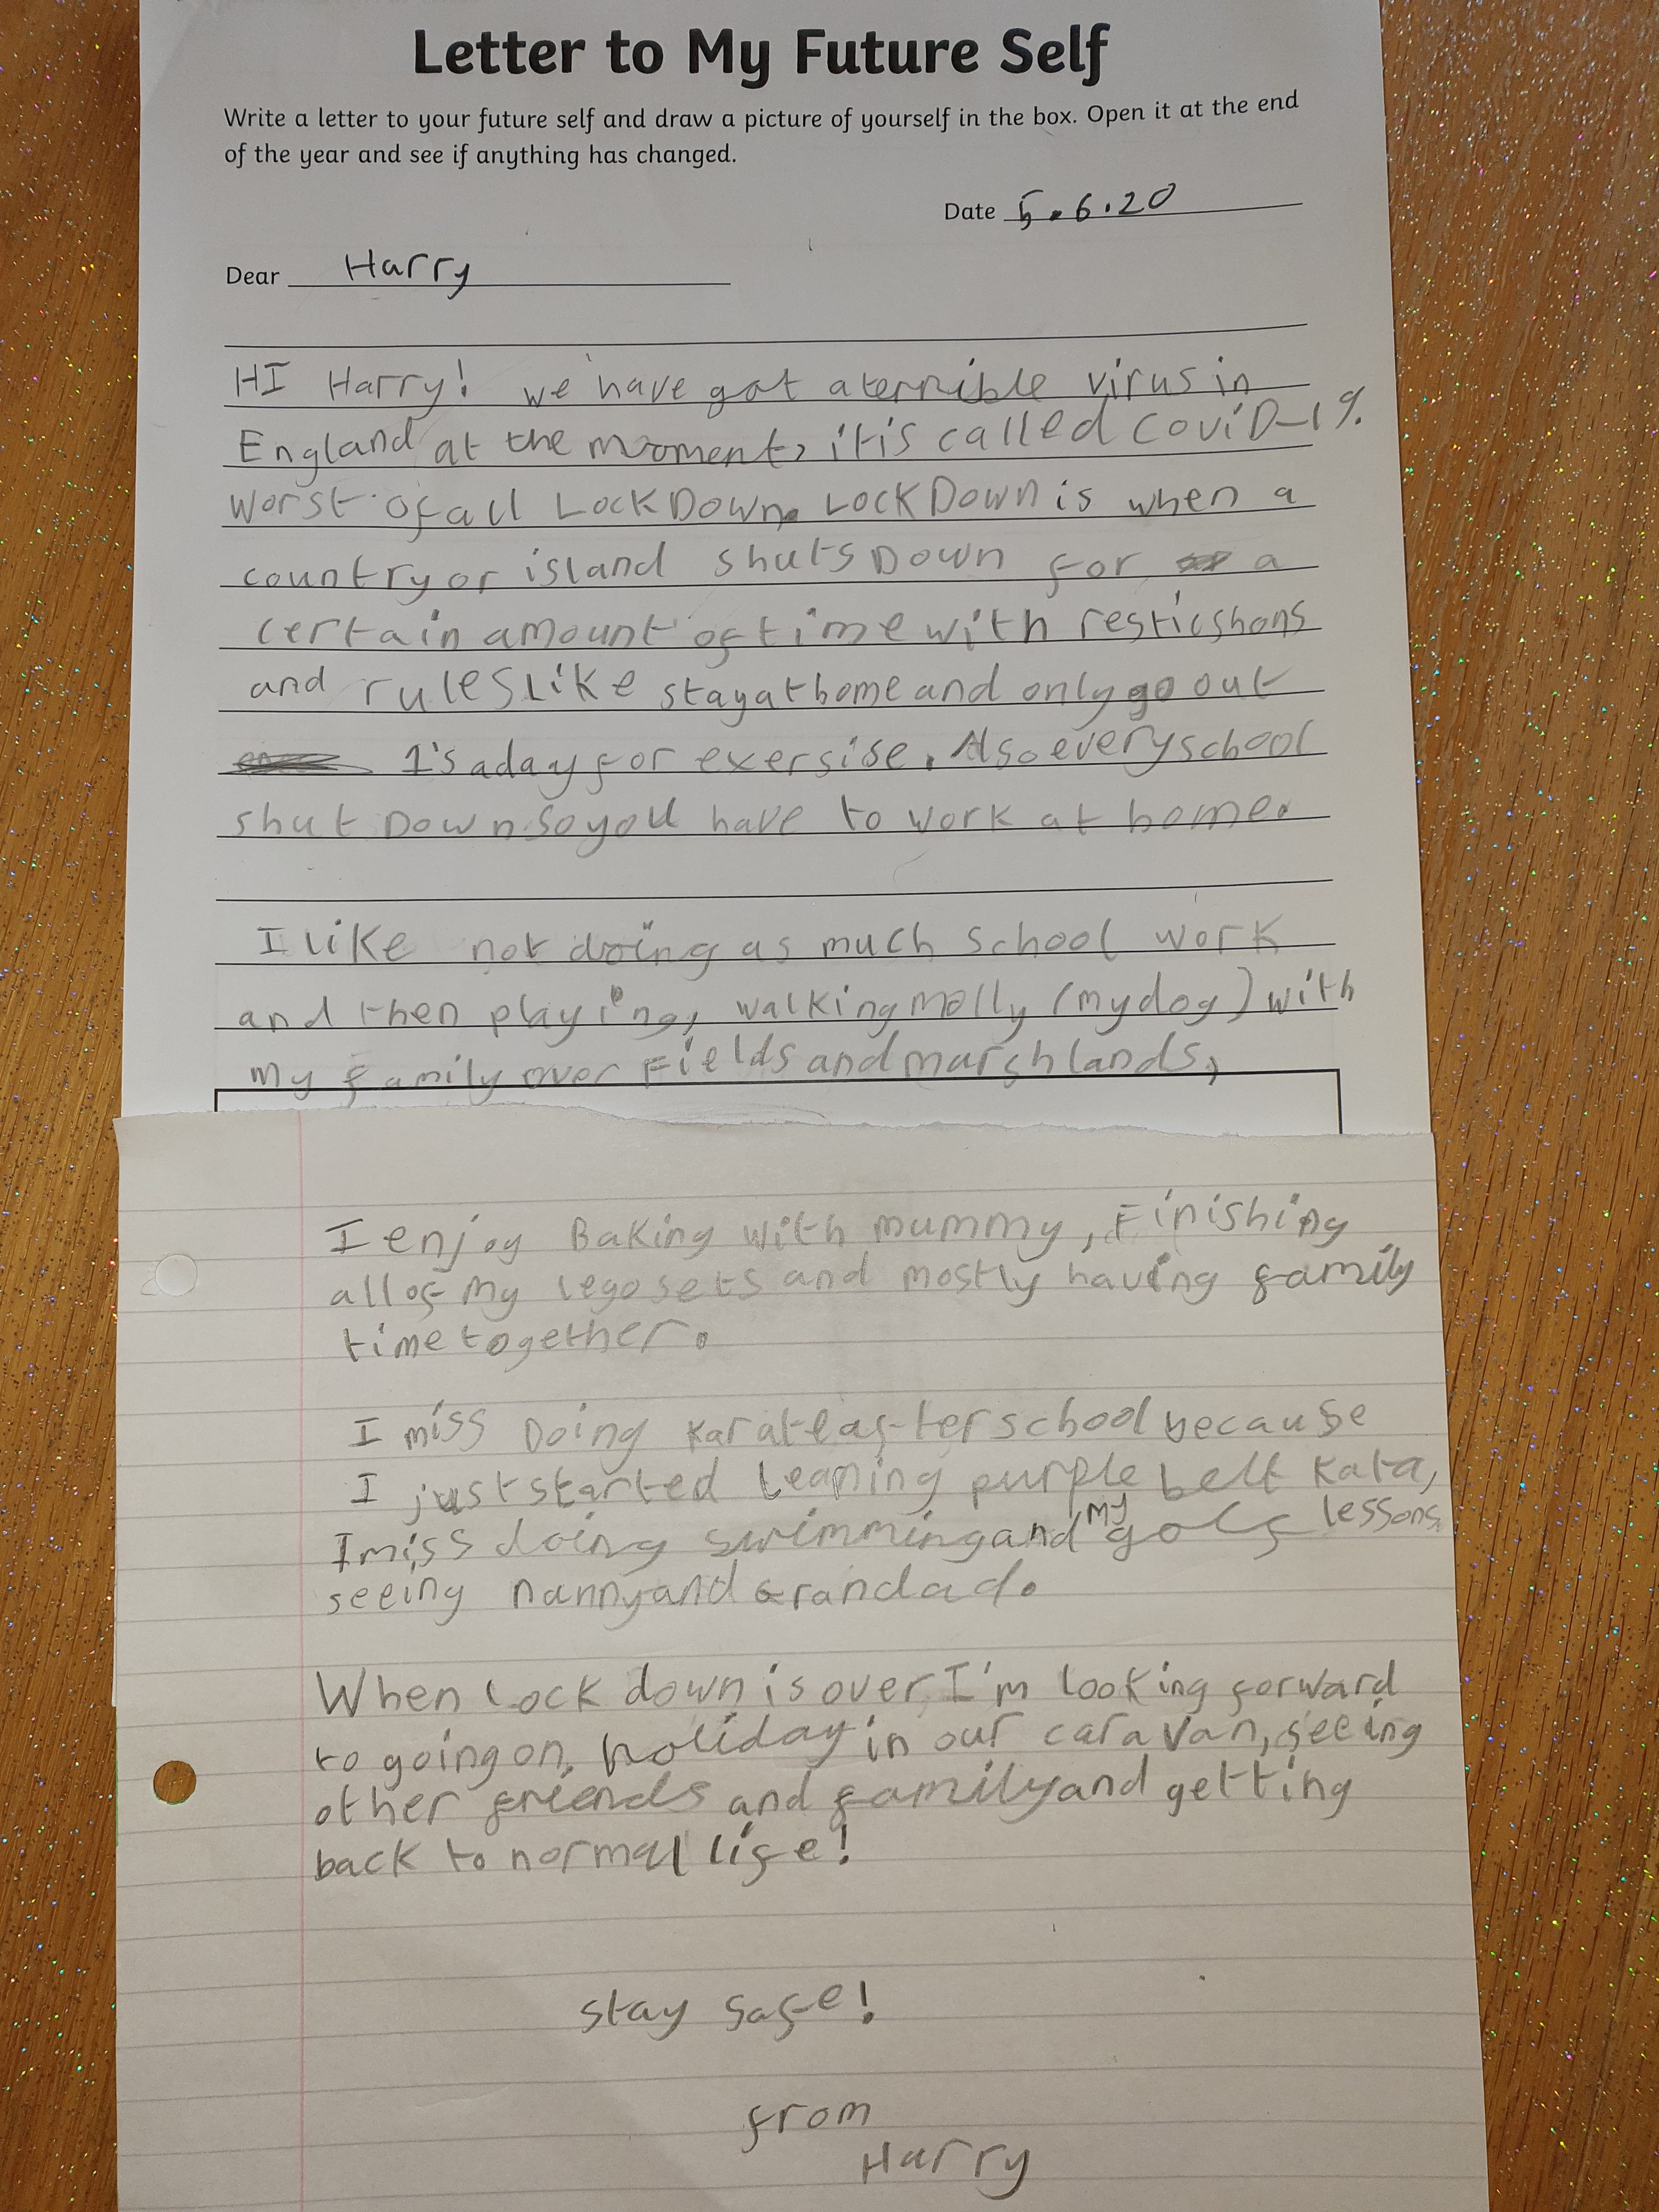 Letter to My Future Self
Write a letter to your future self and draw a picture of yourself in the box. Open it at the end
of the year and see if anything has changed.
Date 5.6.20
Dear Harry
HI Harry! we have got a terrible virus in
England at the moment, it is called CoviD-19.
worst of all LockDown. LockDown is when a
country or island shuts Down for a
certain amount of time with resticshons
and rules like stay at home and only go out
1's a day for exersise. Also every school
shut Down so you have to work at home.
I like not doing as much school work
and then playing, walking molly (my dog) with
my family over Fields and marshlands,
I enjoy Baking with mummy, Finishing
all of my lego sets and mostly having family
time together.
I miss Doing karate after school because
I just started learning purple belt Kata,
I miss doing swimming and my golf lessons
seeing nanny and Grandad.
When lock down is over, I'm looking forward
to going on holiday in our caravan, seeing
other friends and family and getting
back to normal life!
stay safe!
from
Harry